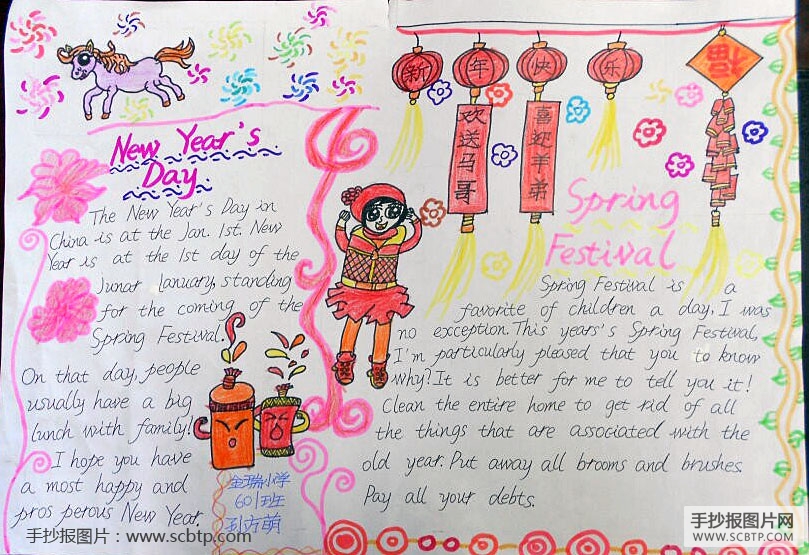 New Year's
Day
The New Year's Day in
China is at the Jan. 1st. New
Year is at the 1st day of the
Junar lanuary, standing
for the coming of the
Spring Festival.
On that day, people
usually have a big
lunch with family!
I hope you have
a most happy and
pros perous New Year.
金瑞小学
601班
手抄报图片：www.scbtp.com
新年快乐
福
欢送马哥
喜迎羊弟
Spring
Festival
Spring Festival is a
favorite of children a day, I was
no exception. This years's Spring Festival,
I'm particularly pleased that you to know
why? It is better for me to tell you it!
Clean the entire home to get rid of all
the things that are associated with the
old year. Put away all brooms and brushes
Pay all your debts.
手抄报图片网
WWW.SCBTP.COM